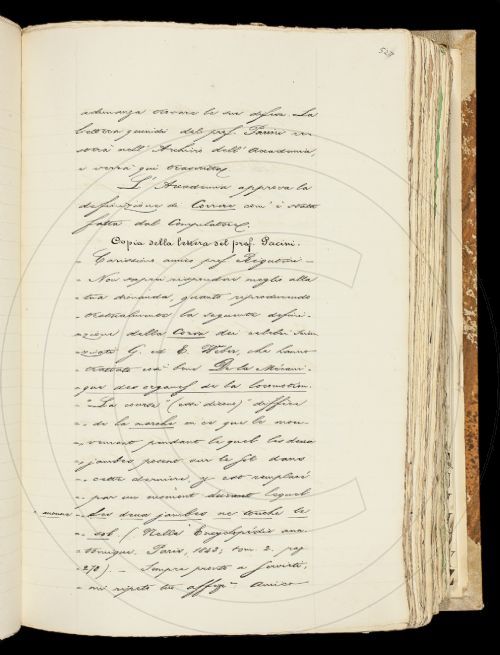 527
adunanza trovare le sue difese. La
lettera quindi del prof. Pacini re-
sterà nell'Archivio dell'Accademia,
e verrà qui trascritta.
L'Accademia approva la
definizione di Correre com'è stata
fatta dal Compilatore.
Copia della lettera del prof. Pacini.
" Carissimo amico prof. Rigutini —
" Non saprei rispondere meglio alla
" tua domanda, quanto riproducendo
" testualmente la seguente defini-
" zione della Corsa dei celebri
" G. ed E. Weber, che hanno
" trattato così bene De la Mécani-
" que des organes de la locomotion.
" "La course" (essi dicono) "diffère
" de la marche en ce que le mou-
" vement pendant lequel les deux
" jambes posent sur le sol dans
" cette dernière, y est remplacé
" par un moment durant lequel
" aucune " des deux jambes ne touche le
" sol (Nella Encyclopédie ana-
" tomique. Paris, 1843; tom. 2. pag.
" 270). — Sempre pronto a servirti,
" mi ripeto tuo affez.º Amico